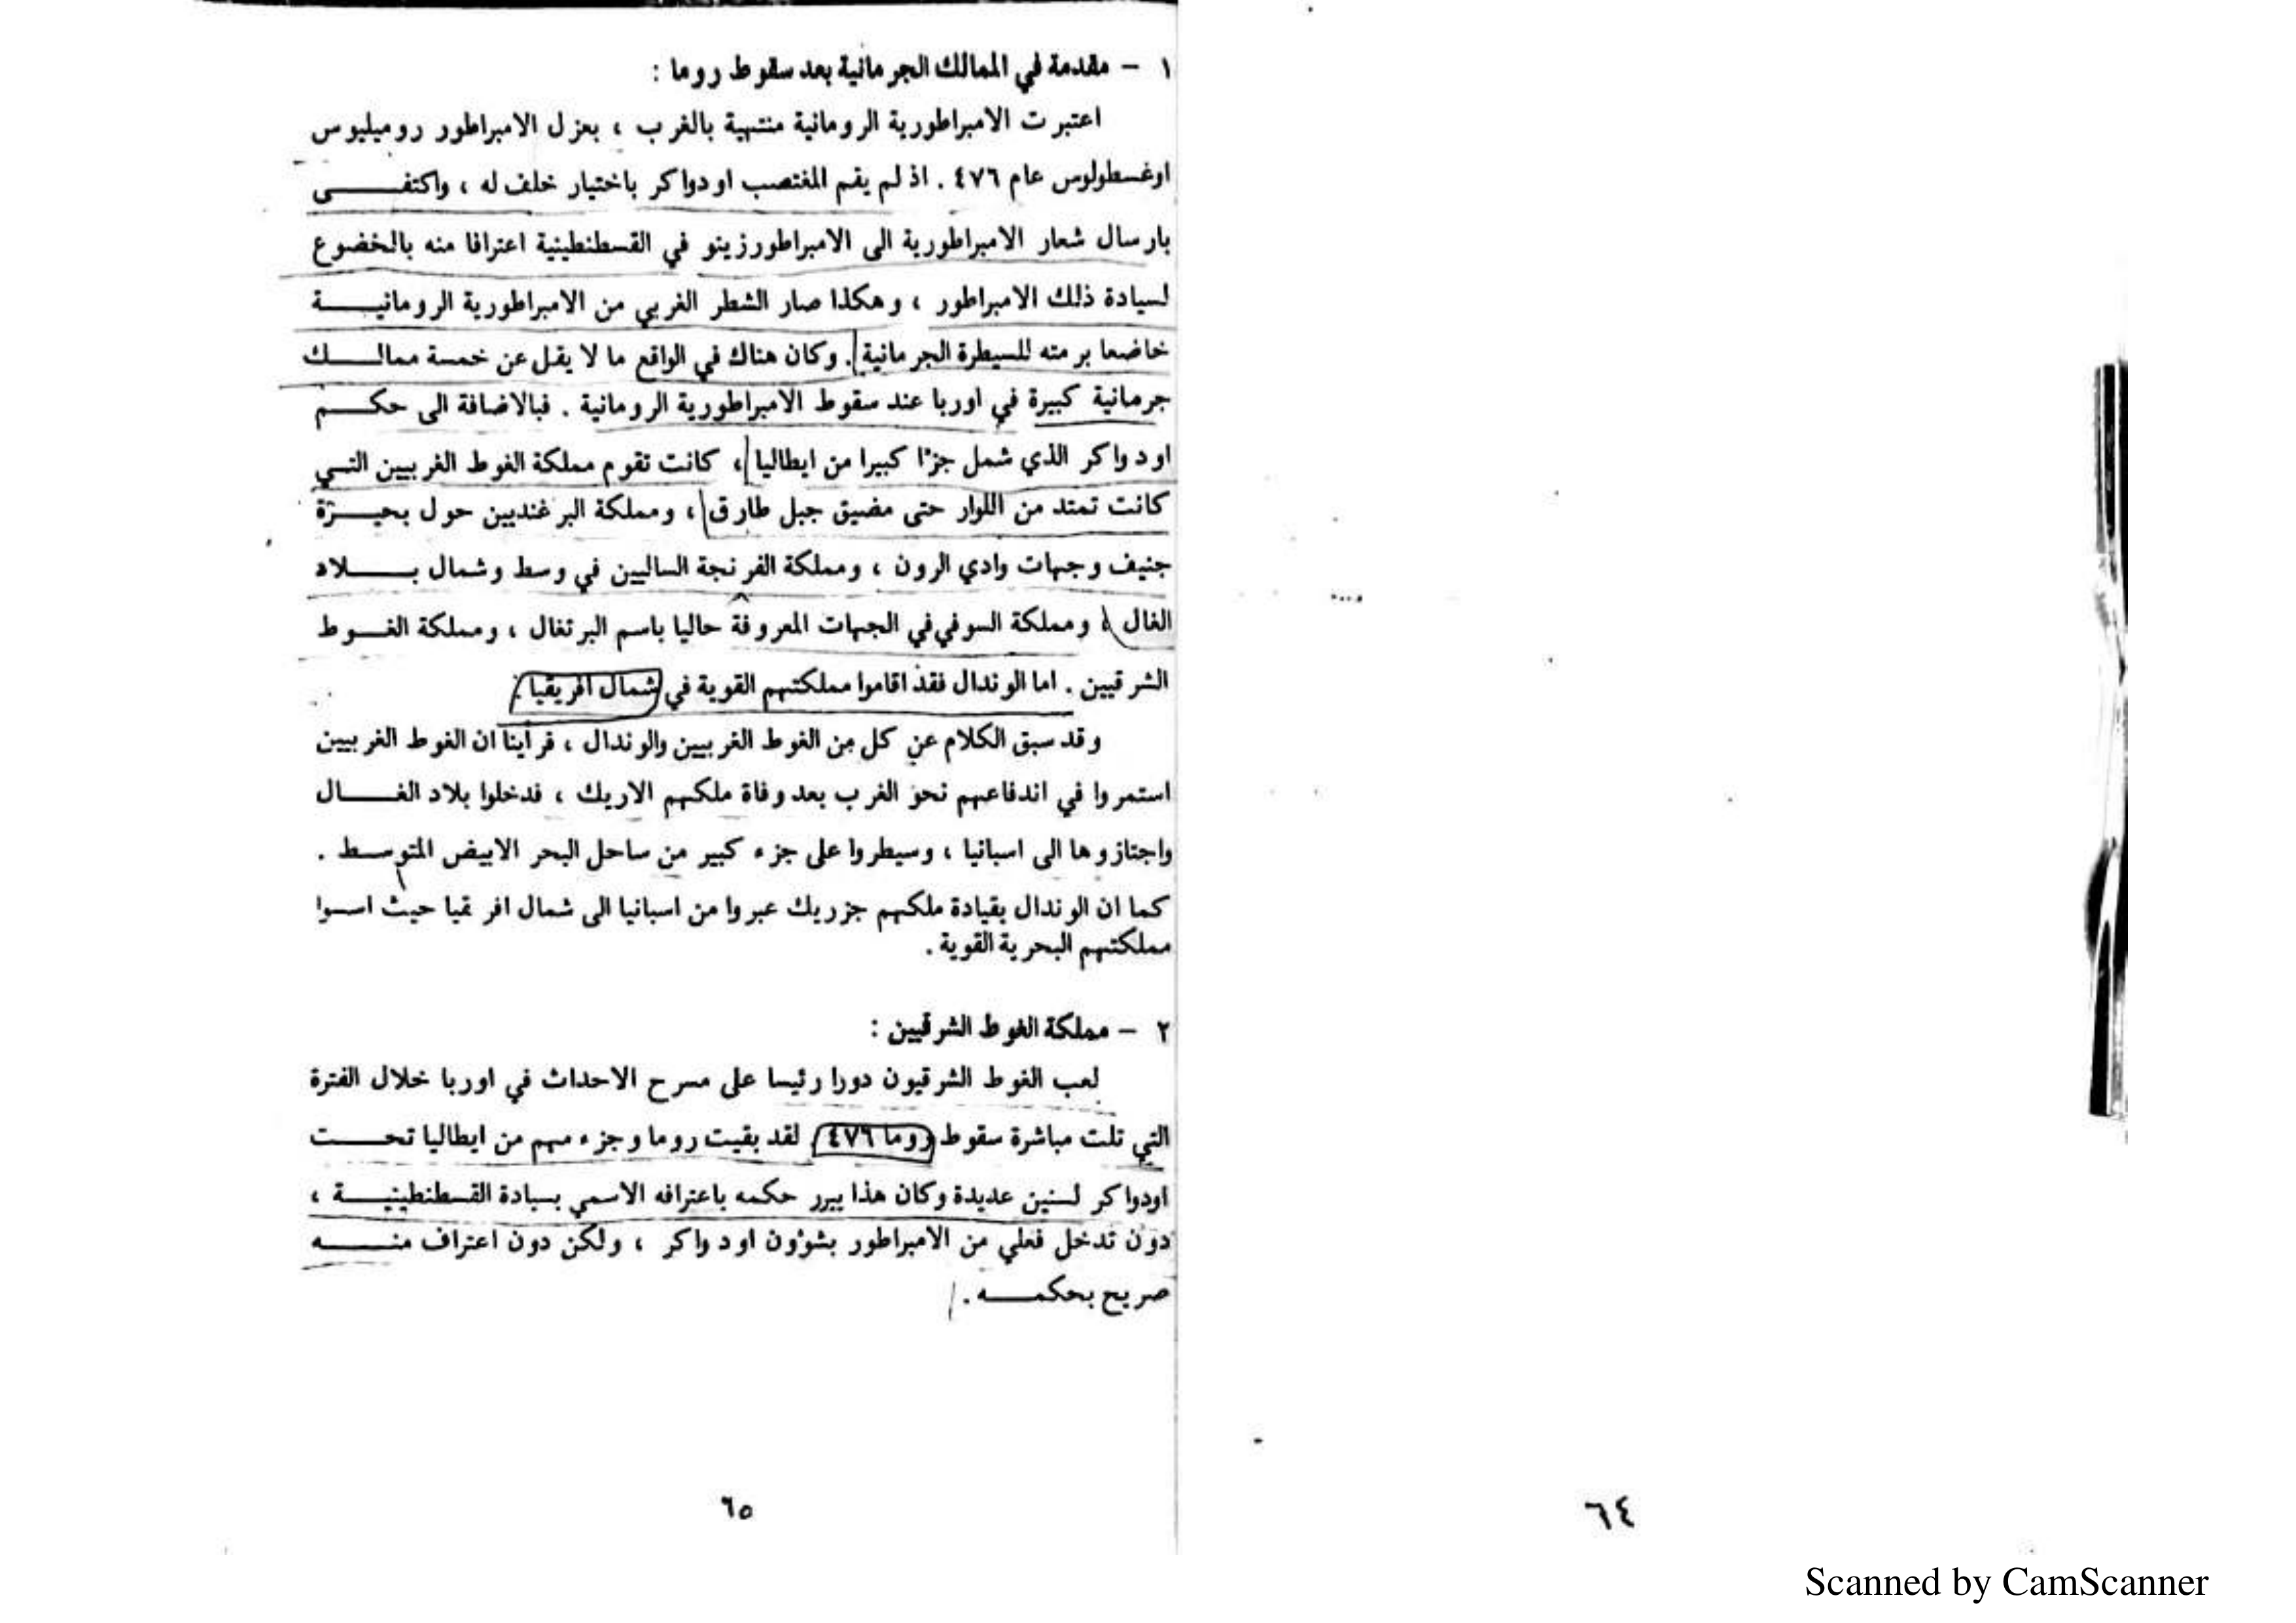 ١ - مقدمة في الممالك الجرمانية بعد سقوط روما :
اعتبرت الامبراطورية الرومانية منتهية بالغرب ، بعزل الامبراطور روميليوس
اوغسطولوس عام ٤٧٦ . اذ لم يقم المغتصب اودواكر باختيار خلف له ، واكتفـــى
بارسال شعار الامبراطورية الى الامبراطورزينو في القسطنطينية اعترافا منه بالخضوع
لسيادة ذلك الامبراطور ، وهكذا صار الشطر الغربي من الامبراطورية الرومانيـــة
خاضعا برمته للسيطرة الجرمانية . وكان هناك في الواقع ما لا يقل عن خمسة ممالـــك
جرمانية كبيرة في اوربا عند سقوط الامبراطورية الرومانية . فبالاضافة الى حكـــم
اودواكر الذي شمل جزءًا كبيرا من ايطاليا ، كانت تقوم مملكة الغوط الغربيين التـــي
كانت تمتد من اللوار حتى مضيق جبل طارق ، ومملكة البرغنديين حول بحيـــرة
جنيف وجهات وادي الرون ، ومملكة الفرنجة الساليين في وسط وشمال بـــلاد
الغال ، ومملكة السوفي في الجهات المعروفة حاليا باسم البرتغال ، ومملكة الغـــوط
الشرقيين . اما الوندال فقد اقاموا مملكتهم القوية في شمال افريقيا .
وقد سبق الكلام عن كل من الغوط الغربيين والوندال ، فرأينا ان الغوط الغربيين
استمروا في اندفاعهم نحو الغرب بعد وفاة ملكهم الاريك ، فدخلوا بلاد الغـــال
واجتازوها الى اسبانيا ، وسيطروا على جزء كبير من ساحل البحر الابيض المتوسـط .
كما ان الوندال بقيادة ملكهم جزريك عبروا من اسبانيا الى شمال افريقيا حيث اسسوا
مملكتهم البحرية القوية .
٢ - مملكة الغوط الشرقيين :
لعب الغوط الشرقيون دورا رئيسا على مسرح الاحداث في اوربا خلال الفترة
التي تلت مباشرة سقوط روما ٤٧٦ . لقد بقيت روما وجزء مهم من ايطاليا تحـــت
اودواكر لسنين عديدة وكان هذا يبرر حكمه باعترافه الاسمي بسيادة القسطنطينيـــة ،
دون تدخل فعلي من الامبراطور بشؤون اودواكر ، ولكن دون اعتراف منـــه
صريح بحكمـــه .
٦٥
٦٤
Scanned by CamScanner